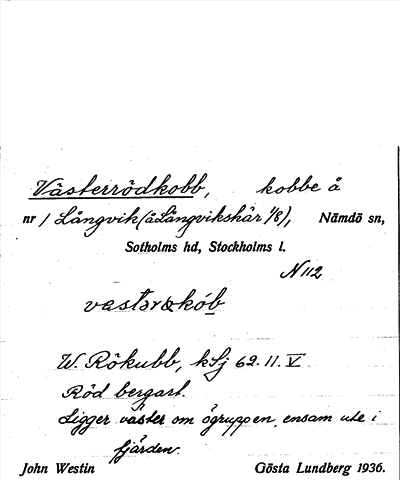 Västerrödkobb, kobbe å
nr 1 Långvik (å Långvikskär 1/8), Nämdö sn,
Sotholms hd, Stockholms l.
N 112
W. Rökubb, kSj 62.11.V
Röd bergart.
Ligger väster om ögruppen, ensam ute i
fjärden.
John Westin Gösta Lundberg 1936.